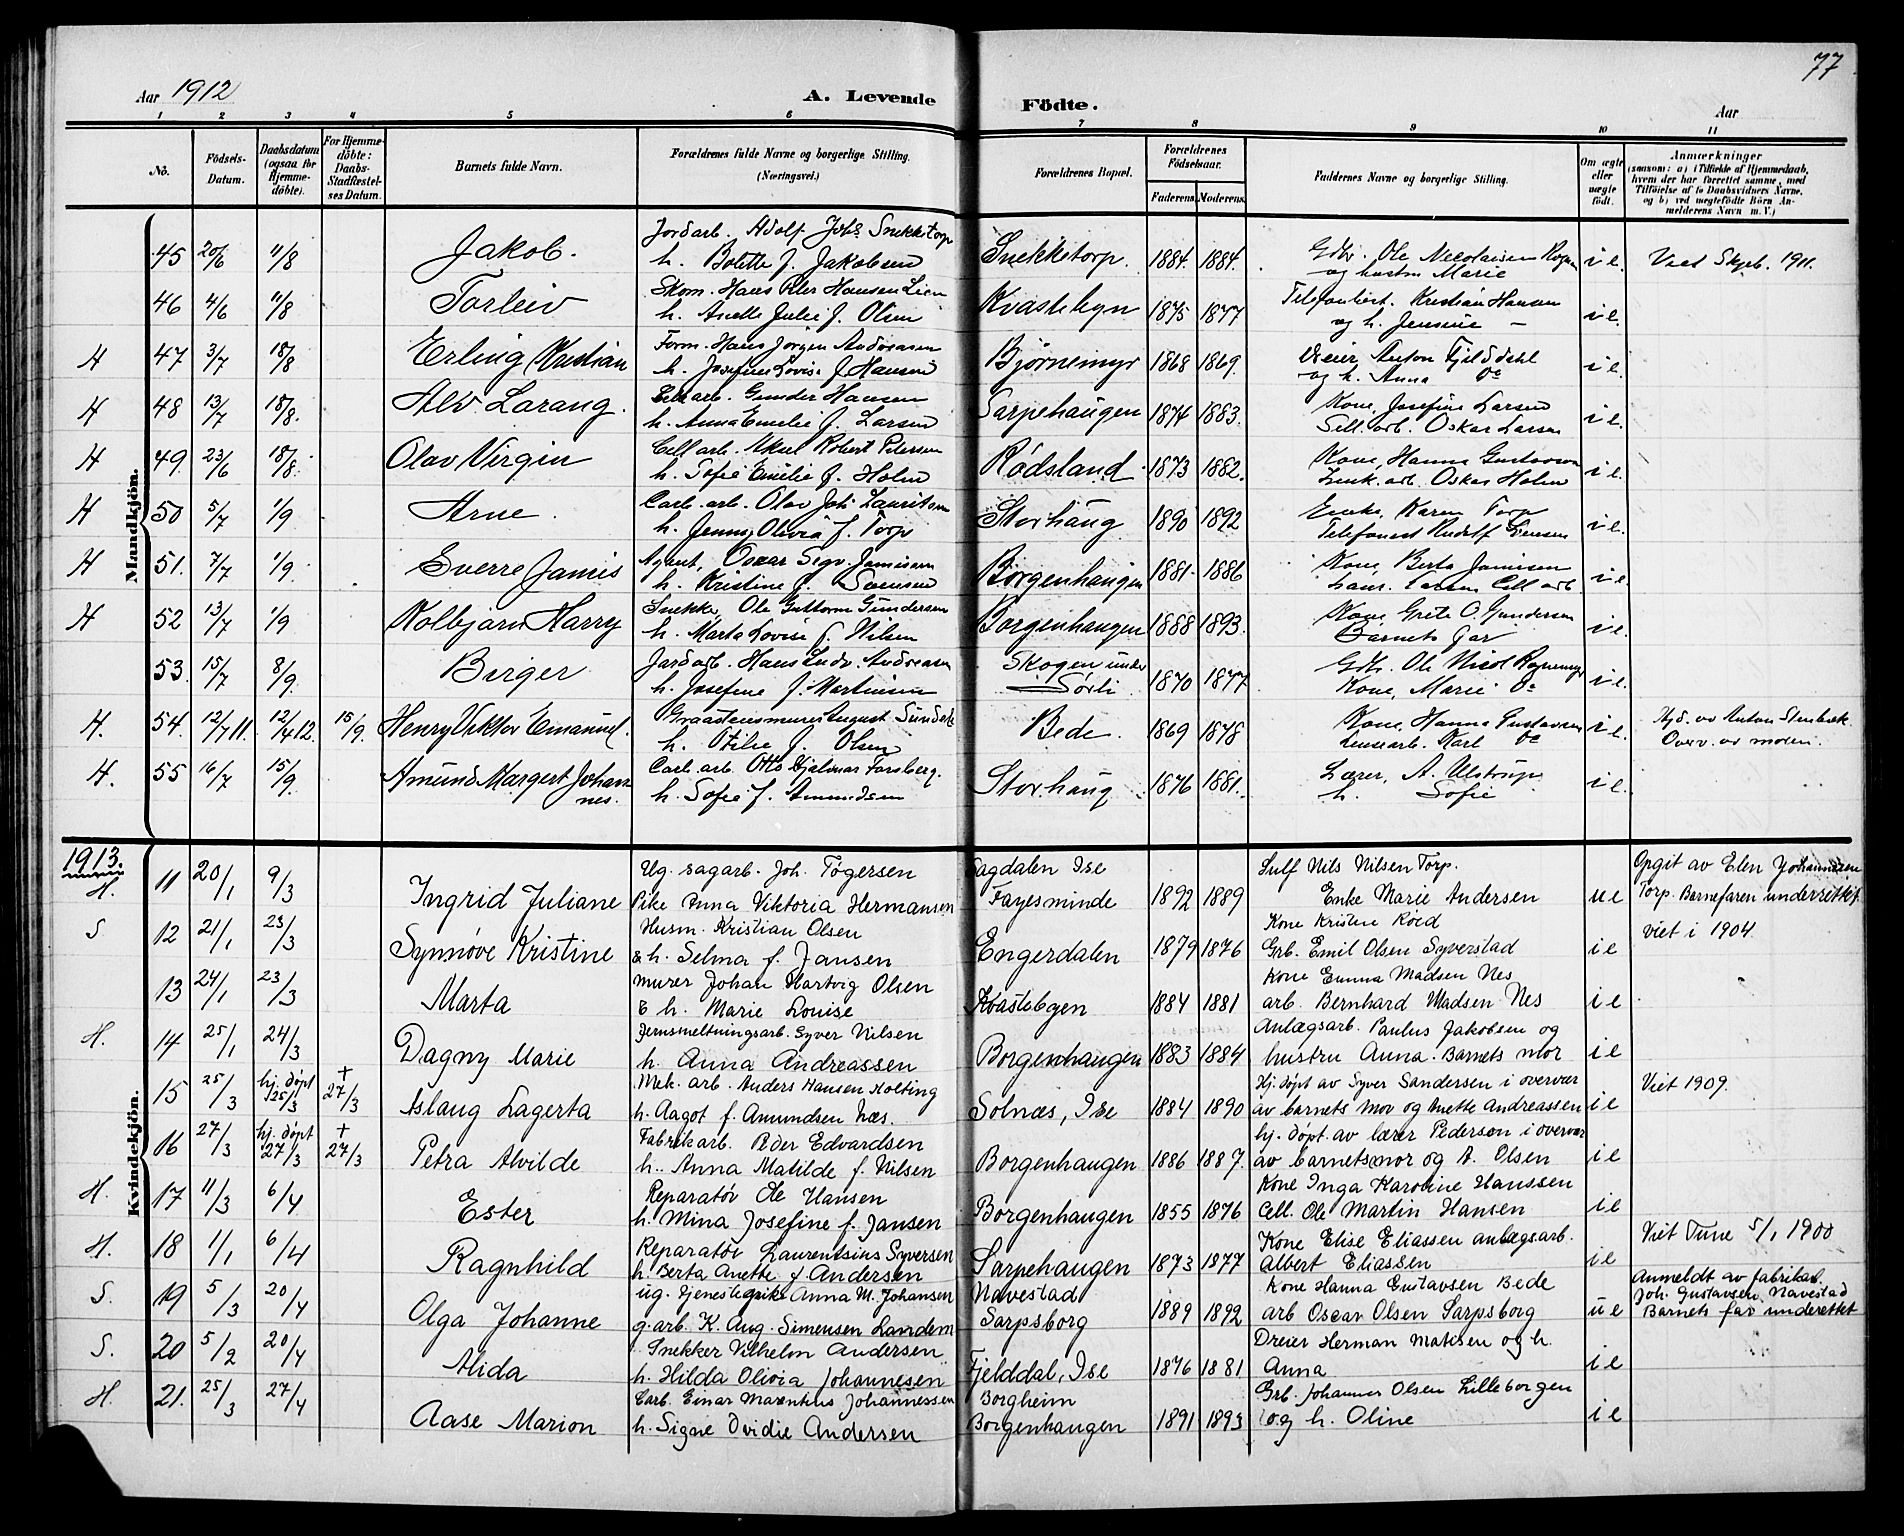 77
Aar 1912
A. Levende Födte.
Aar
1 2 3 4 5 6 7 8 9 10 11
No.
Födsels-Datum.
Daabsdatum (ogsaa for Hjemme-döbte).
For Hjemme-döbte: Daabs-Stadfæstel-ses Datum.
Barnets fulde Navn.
Forældrenes fulde Navne og borgerlige Stilling. (Næringsvei.)
Forældrenes Bopæl.
Forældrenes Födselsaar.
Faderens. Moderens.
Faddernes Navne og borgerlige Stilling.
Om ægte eller uægte födt.
Anmærkninger
(saasom: a) i Tilfælde af Hjemmedaab, hvem der har forrettet samme, med Tilföielse af to Daabsvidners Navne, og b) ved uegtefödte Börn An-melderens Navn m. V.)
Mandkjön.
45 20/6 11/8 Jakob. Jordarb. Adolf Johs Snekkstorp
h. Bolette f. Jakobsen Snekketorp. 1884. 1884. Gdbr. Ole Nicolaisen
og hustru Marie i e. Viet Skjeb. 1911.
46 4/6 11/8 Torleiv Skom. Hans Peter Hansen Lien
h. Anette Julie f. Olsen Kvastebyn 1875 1877 Telefonbest. Kristian Hansen
og h. Jensine — i e.
H 47 3/7 18/8 Erling Kristian Form. Hans Jørgen Andreasen
h. Josefine Lovise f. Hansen Bjørnemyr 1868 1869. Dreier Anton Fjelddahl
og h. Anna Do i e.
H 48 13/7 18/8. Alv Larang. Cell arb. Gunder Hansen
h. Anna Emilie f. Larsen Sarpehaugen 1874 1883. Kone, Josefine Larsen
Cell. arb. Oskar Larsen i e.
H 49. 23/6 18/8. Olav Virgin Cell arb. Aksel Robert Petersen
h. Sofie Emilie f. Holm Rødsland 1873 1882. Kone, Hanna Gustavson
Zink. arb. Oskar Holm i e.
H 50 5/7 1/9 Arne. Carb. arb. Olav Joh. Lauritsen
h. Jenny Olivia f. Torp Storhaug 1890 1892 Enke, Karen Torp
Telefonast Rudolf Jensen i e.
H 51. 7/7 1/9. Sverre Jamis Agent, Oscar Sigv. Jamissen
h. Kristine f. Svensen Borgenhaugen 1881. 1886 Kone, Berta Jamissen
Laur. Larsen Cell arb i e.
H 52 13/7 1/9 Kolbjørn Harry Snekker Ole Guttorm Gundersen
h. Marta Lovise f. Nilsen Borgenhaugen 1888 1893. Kone, Grete O. Gundersen
Barnets far i e.
53. 15/7 8/9 Birger Jordarb. Hans Ludv. Andreasen
h. Josefine f. Martinsen Skogen under
Sørli 1870 1877 Gdb. Ole Nicol
Kone, Marie Do i e.
H. 54. 12/7 11. 12/4 12. 15/9. Henry Viktor Emanuel. Graastensmurer August Sundell
h. Otilie f. Olsen Bede. 1869 1878 Kone, Hanna Gustavsen
Karl Do i e. Hjd. av Anton Stenbæk.
Overv. av moren.
H. 55 16/7 15/9. Amund Margert Johan-
nes. Carb. arb. Otto Hjalmar Forsberg.
h. Sofie f. Amundsen Storhaug 1876 1881. Lærer, A. Ulstrup
h. Sofie i e.
1913.
Kvindekjön.
H. 11 20/1 9/3 Ingrid Juliane Ug. sagarb. Joh. Tøgersen
Pike Anna Viktoria Hermansen Sagdalen Ise
Fayesminde 1892 1889 Sulf Nils Nilsen Torp.
Enke Marie Andersen u e Opgit av Elen Johannesen
Torp. Barnefaren underrettet.
S 12 21/1 23/3 Synnøve Kristine Husm. Kristian Olsen
& h. Selma f. Jansen Engerdalen 1879 1876 Kone Kristine Røed
Grb. Emil Olsen Syverstad i e viet i 1904
13 24/1 23/3 Marta murer Johan Hartvig Olsen
& h. Marie Louise Kvastebgen 1884 1881 Kone Emma Madsen Nes
arb. Bernhard Madsen Nes i e
H. 14 25/1 24/3 Dagny Marie Jernsmeltningsarb. Syver Nilsen
h. Anna Andreassen Borgenhaugen 1883 1884 Anlægsarb. Paulus Jakobsen og
hustru Anna. Barnets mor i e
15 25/3 hj. døpt 25/3 + 27/3 Aslaug Lagerta Mek. arb. Anders Hansen Kolting
h. Aagot f. Amundsen Næs. Solnæs, Ise 1884 1890 Hj. døpt av Syver Sandersen i overvær
av barnets mor og Anette Andreassen i e Viet 1909.
16 27/3 hj. døpt 27/3 + 27/3 Petra Alvilde Fabrikarb. Peder Edvardsen
h. Anna Matilde f. Nilsen Borgenhaugen 1886 1887. hj. døpt av lærer Pederson i overvær
av barnets mor og A. Olsen i e
H. 17 11/3 6/4 Ester Reparatør Ole Hansen
h. Mina Josefine f. Jansen Borgenhaugen 1855 1876 Kone Inga Karoline Hanssen
Cell. Ole Martin Hansen i e
H. 18 1/1 6/4 Ragnhild Reparatør Laurentsius Syversen
h. Berta Anette f Andersen Sarpehaugen 1873 1877 Kone Elise Eliassen anlægsarb.
Albert Eliassen i e Viet Tune 5/1 1900
S. 19 5/3 20/4 Olga Johanne ug. tjenestepike Anna M. Johansen
g. arb. K. Aug. Simensen Landem Navestad
Sarpsborg 1889 1892 Kone Hanna Gustavsen Bede
arb Oscar Olsen Sarpsborg u e Anmeldt av fabrikar.
Joh. Gustavsen, Navestad
Barnets far underettet
S. 20 5/2 20/4 Alida Snekker Vilhelm Andersen
h. Hilda Olivia Johannesen Fjelddal, Ise 1876 1881 Dreier Herman Matisen og h.
Anna i e
H. 21. 25/3 27/4 Aase Marion Carb. Einar Maxentius Johannessen
h. Signe Ovidie Andersen Borgheim
Borgenhaugen 1891 1893 Grb. Johannes Olsen Lilleborgen
og h. Oline i e